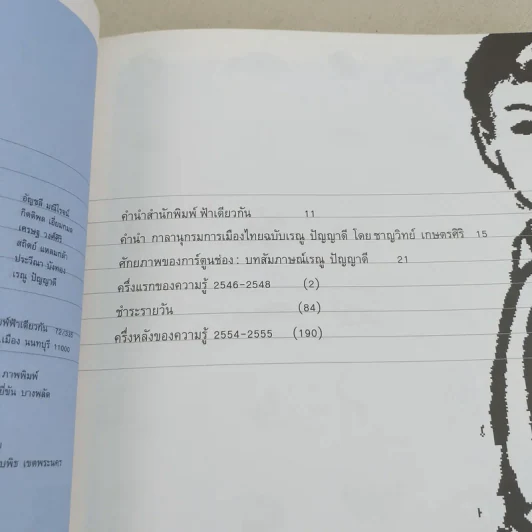 อัญชลี มณีโรจน์
กิตติพล เอี่ยมกมล
เศรษฐ วงศ์ศิริ
สถิตย์
ประวีณา
เรณู ปัญญาดี
ฟ้าเดียวกัน
เมือง นนทบุรี 11000
ภาพพิมพ์
บางพลัด
เขตพระนคร
คำนำสำนักพิมพ์ ฟ้าเดียวกัน 11
คำนำ กาลานุกรมการเมืองไทยฉบับเรณู ปัญญาดี โดย ชาญวิทย์ เกษตรศิริ 15
ศักยภาพของการ์ตูนช่อง: บทสัมภาษณ์เรณู ปัญญาดี 21
ครึ่งแรกของความรู้ 2546-2548 (2)
ชำระรายวัน (84)
ครึ่งหลังของความรู้ 2554-2555 (190)